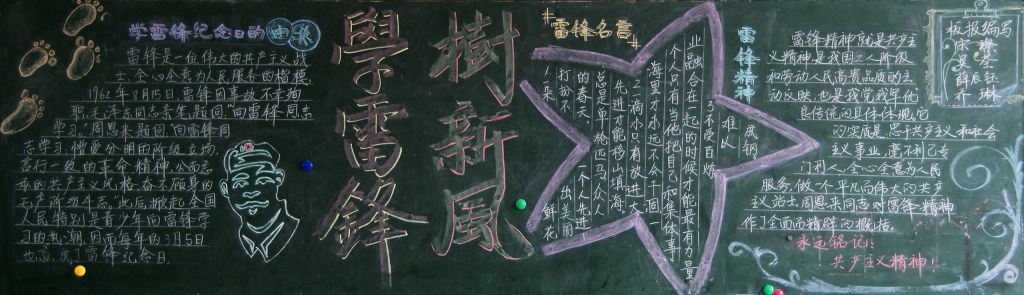 学雷锋纪念日的由来
雷锋是一位伟大的共产主义战
士、全心全意为人民服务的楷模。
1962年8月15日,雷锋因事故不幸殉
职,毛泽东同志亲笔题词"向雷锋同志
学习",周恩来题词"向雷锋同
志学习,憎爱分明的阶级立场、
言行一致的革命精神、公而忘
私的共产主义风格、奋不顾身的
无产阶级斗志。"此后掀起全国
人民特别是青少年向雷锋学
习的热潮,因而每年的3月5日
也就成了雷锋纪念日。
學雷鋒
樹新風
雷锋名言
1.一朵鲜花
打扮不出美丽
的春天,一个人先进
总是单枪匹马,众人
先进才能移山填海。
2.一滴水只有放进大
海里才永远不会干涸,一
个人只有当他把自己和集体事
业融合在一起的时候才能最有力量。
3.不受百炼,
难以
成钢。
雷锋精神
雷锋精神就是共产主
义精神,是我国工人阶级
和劳动人民高贵品质的生
动反映,也是我党我军优
良传统的具体体现。它
的实质是忠于共产主义和社会
主义事业,毫不利己专
门利人,全心全意为人民
服务,做一个平凡而伟大的共产
主义战士。周恩来同志对雷锋精神
作了全面而精辟的概括。
永远铭记:
共产主义精神!
板报编写